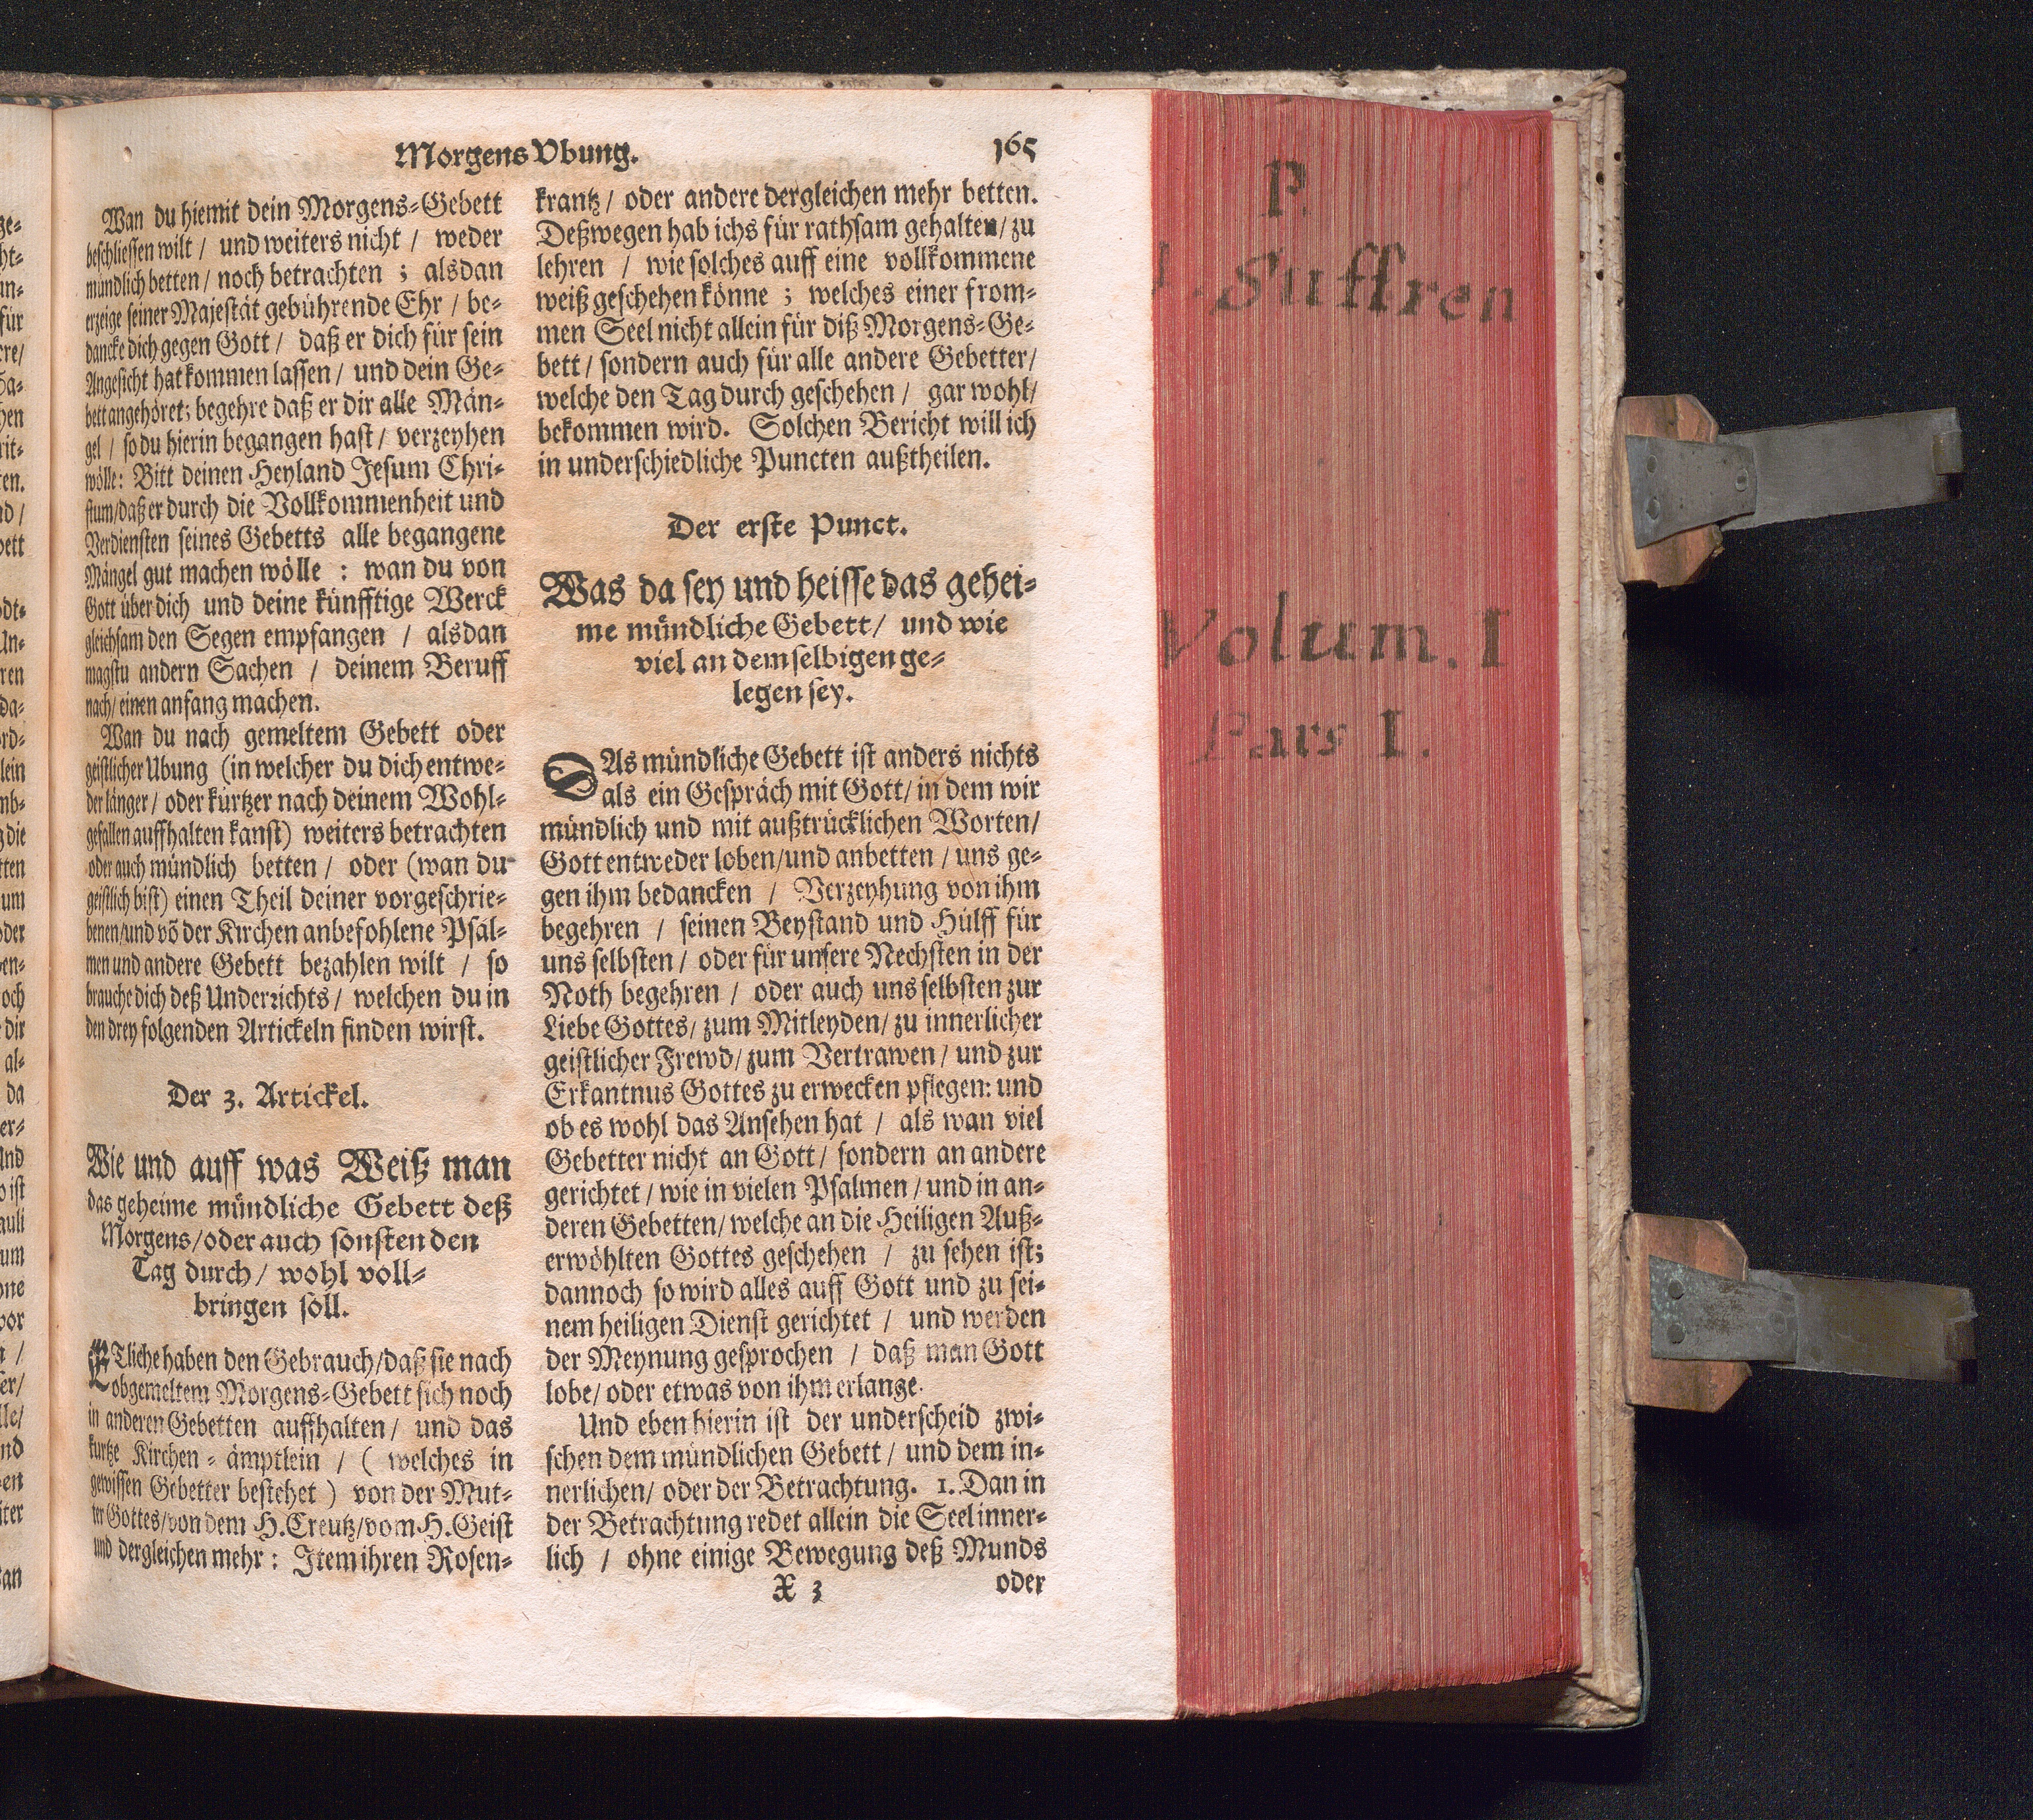 Morgens Vbung.
165
Wan du hiemit dein Morgens-Gebett
beschliessen wilt / und weiters nicht / weder
mündlich betten / noch betrachten ; alsdan
erzeige seiner Majestät gebührende Ehr / be-
dancke dich gegen Gott / daß er dich für sein
Angesicht hat kommen lassen / und dein Ge-
bett angehöret; begehre daß er dir alle Män-
gel / so du hierin begangen hast / verzeyhen
wölle: Bitt deinen Heyland Jesum Chri-
stum/daß er durch die Vollkommenheit und
Verdiensten seines Gebetts alle begangene
Mängel gut machen wölle : wan du von
Gott über dich und deine künfftige Werck
gleichsam den Segen empfangen / alsdan
magstu andern Sachen / deinem Beruff
nach/ einen anfang machen.
Wan du nach gemeltem Gebett oder
geistlicher Ubung (in welcher du dich entwe-
der länger / oder kürtzer nach deinem Wohl-
gefallen auffhalten kanst) weiters betrachten
oder auch mündlich betten / oder (wan du
geistlich bist) einen Theil deiner vorgeschrie-
benen/und võ der Kirchen anbefohlene Psal-
men und andere Gebett bezahlen wilt / so
brauche dich deß Underrichts / welchen du in
den drey folgenden Artickeln finden wirst.
Der 3. Artickel.
Wie und auff was Weiß man
das geheime mündliche Gebett deß
Morgens/oder auch sonsten den
Tag durch/ wohl voll-
bringen soll.
ETliche haben den Gebrauch/daß sie nach
obgemeltem Morgens-Gebett sich noch
in anderen Gebetten auffhalten / und das
kurtze Kirchen-ämptlein / ( welches in
gewissen Gebetter bestehet ) von der Mut-
ter Gottes/von dem H. Creutz/vom H. Geist
und dergleichen mehr : Item ihren Rosen-
krantz / oder andere dergleichen mehr betten.
Deßwegen hab ichs für rathsam gehalten/ zu
lehren / wie solches auff eine vollkommene
weiß geschehen könne ; welches einer from-
men Seel nicht allein für diß Morgens-Ge-
bett / sondern auch für alle andere Gebetter/
welche den Tag durch geschehen / gar wohl/
bekommen wird. Solchen Bericht will ich
in underschiedliche Puncten außtheilen.
Der erste Punct.
Was da sey und heisse das gehei-
me mündliche Gebett/ und wie
viel an demselbigen ge-
legen sey.
DAs mündliche Gebett ist anders nichts
als ein Gespräch mit Gott/ in dem wir
mündlich und mit außtrücklichen Worten/
Gott entweder loben/und anbetten / uns ge-
gen ihm bedancken / Verzeyhung von ihm
begehren / seinen Beystand und Hülff für
uns selbsten / oder für unsere Nechsten in der
Noth begehren / oder auch uns selbsten zur
Liebe Gottes/ zum Mitleyden/ zu innerlicher
geistlicher Frewd/ zum Vertrawen / und zur
Erkantnus Gottes zu erwecken pflegen: und
ob es wohl das Ansehen hat / als wan viel
Gebetter nicht an Gott / sondern an andere
gerichtet / wie in vielen Psalmen / und in an-
deren Gebetten/ welche an die Heiligen Auß-
erwöhlten Gottes geschehen / zu sehen ist;
dannoch so wird alles auff Gott und zu sei-
nem heiligen Dienst gerichtet / und werden
der Meynung gesprochen / daß man Gott
lobe/ oder etwas von ihm erlange.
Und eben hierin ist der underscheid zwi-
schen dem mündlichen Gebett / und dem in-
nerlichen/ oder der Betrachtung. 1. Dan in
der Betrachtung redet allein die Seel inner-
lich / ohne einige Bewegung deß Munds
X 3
oder
P.
Suffren
Volum. I
Pars I.